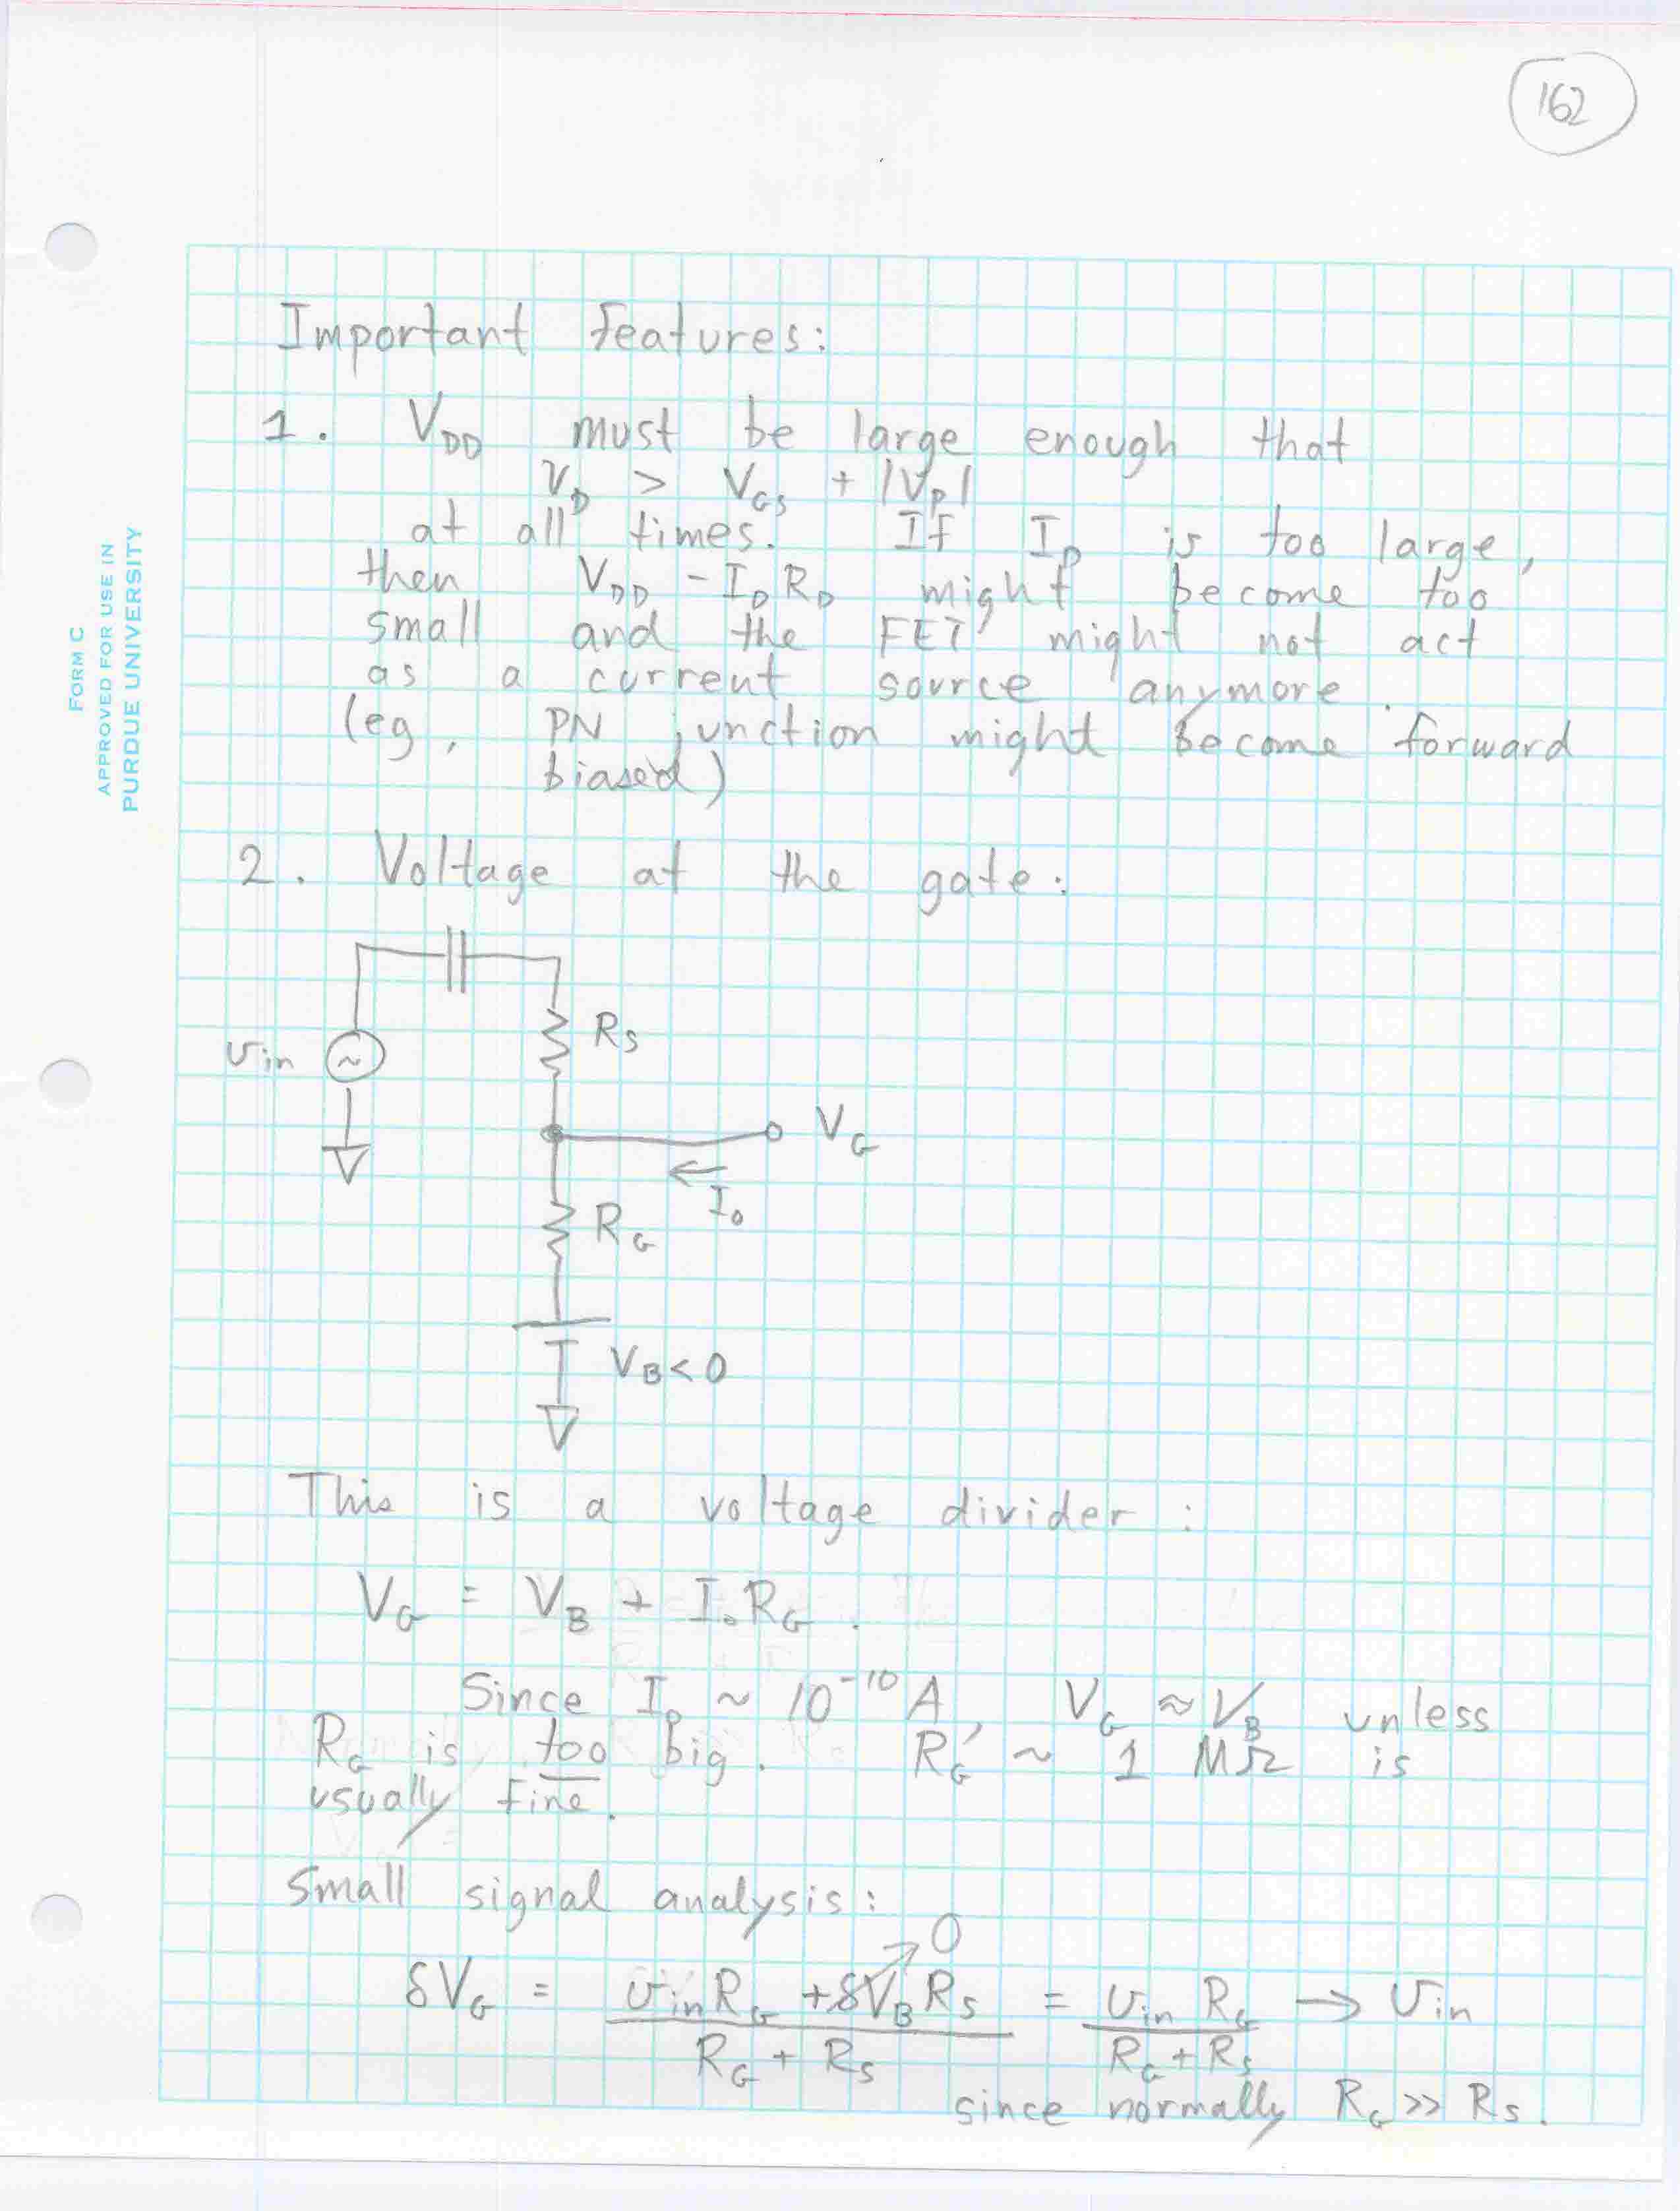 162
FORM C
APPROVED FOR USE IN
PURDUE UNIVERSITY
Important features:
1. V_DD must be large enough that
V_D > V_GS + |V_P|
at all times. If I_D is too large,
then V_DD - I_D R_D might become too
small and the FET might not act
as a current source anymore.
(eg, PN junction might become forward
biased)
2. Voltage at the gate:
R_S
v_in ~
V_G
I_0
R_G
V_B < 0
This is a voltage divider:
V_G = V_B + I_0 R_G.
Since I_0 ~ 10^-10 A, V_G ≈ V_B unless
R_G is too big. R_G ~ 1 MΩ is
usually fine.
Small signal analysis:
0
δV_G = (v_in R_G + δV_B R_S) / (R_G + R_S) = (v_in R_G) / (R_G + R_S) → v_in
since normally R_G >> R_S.